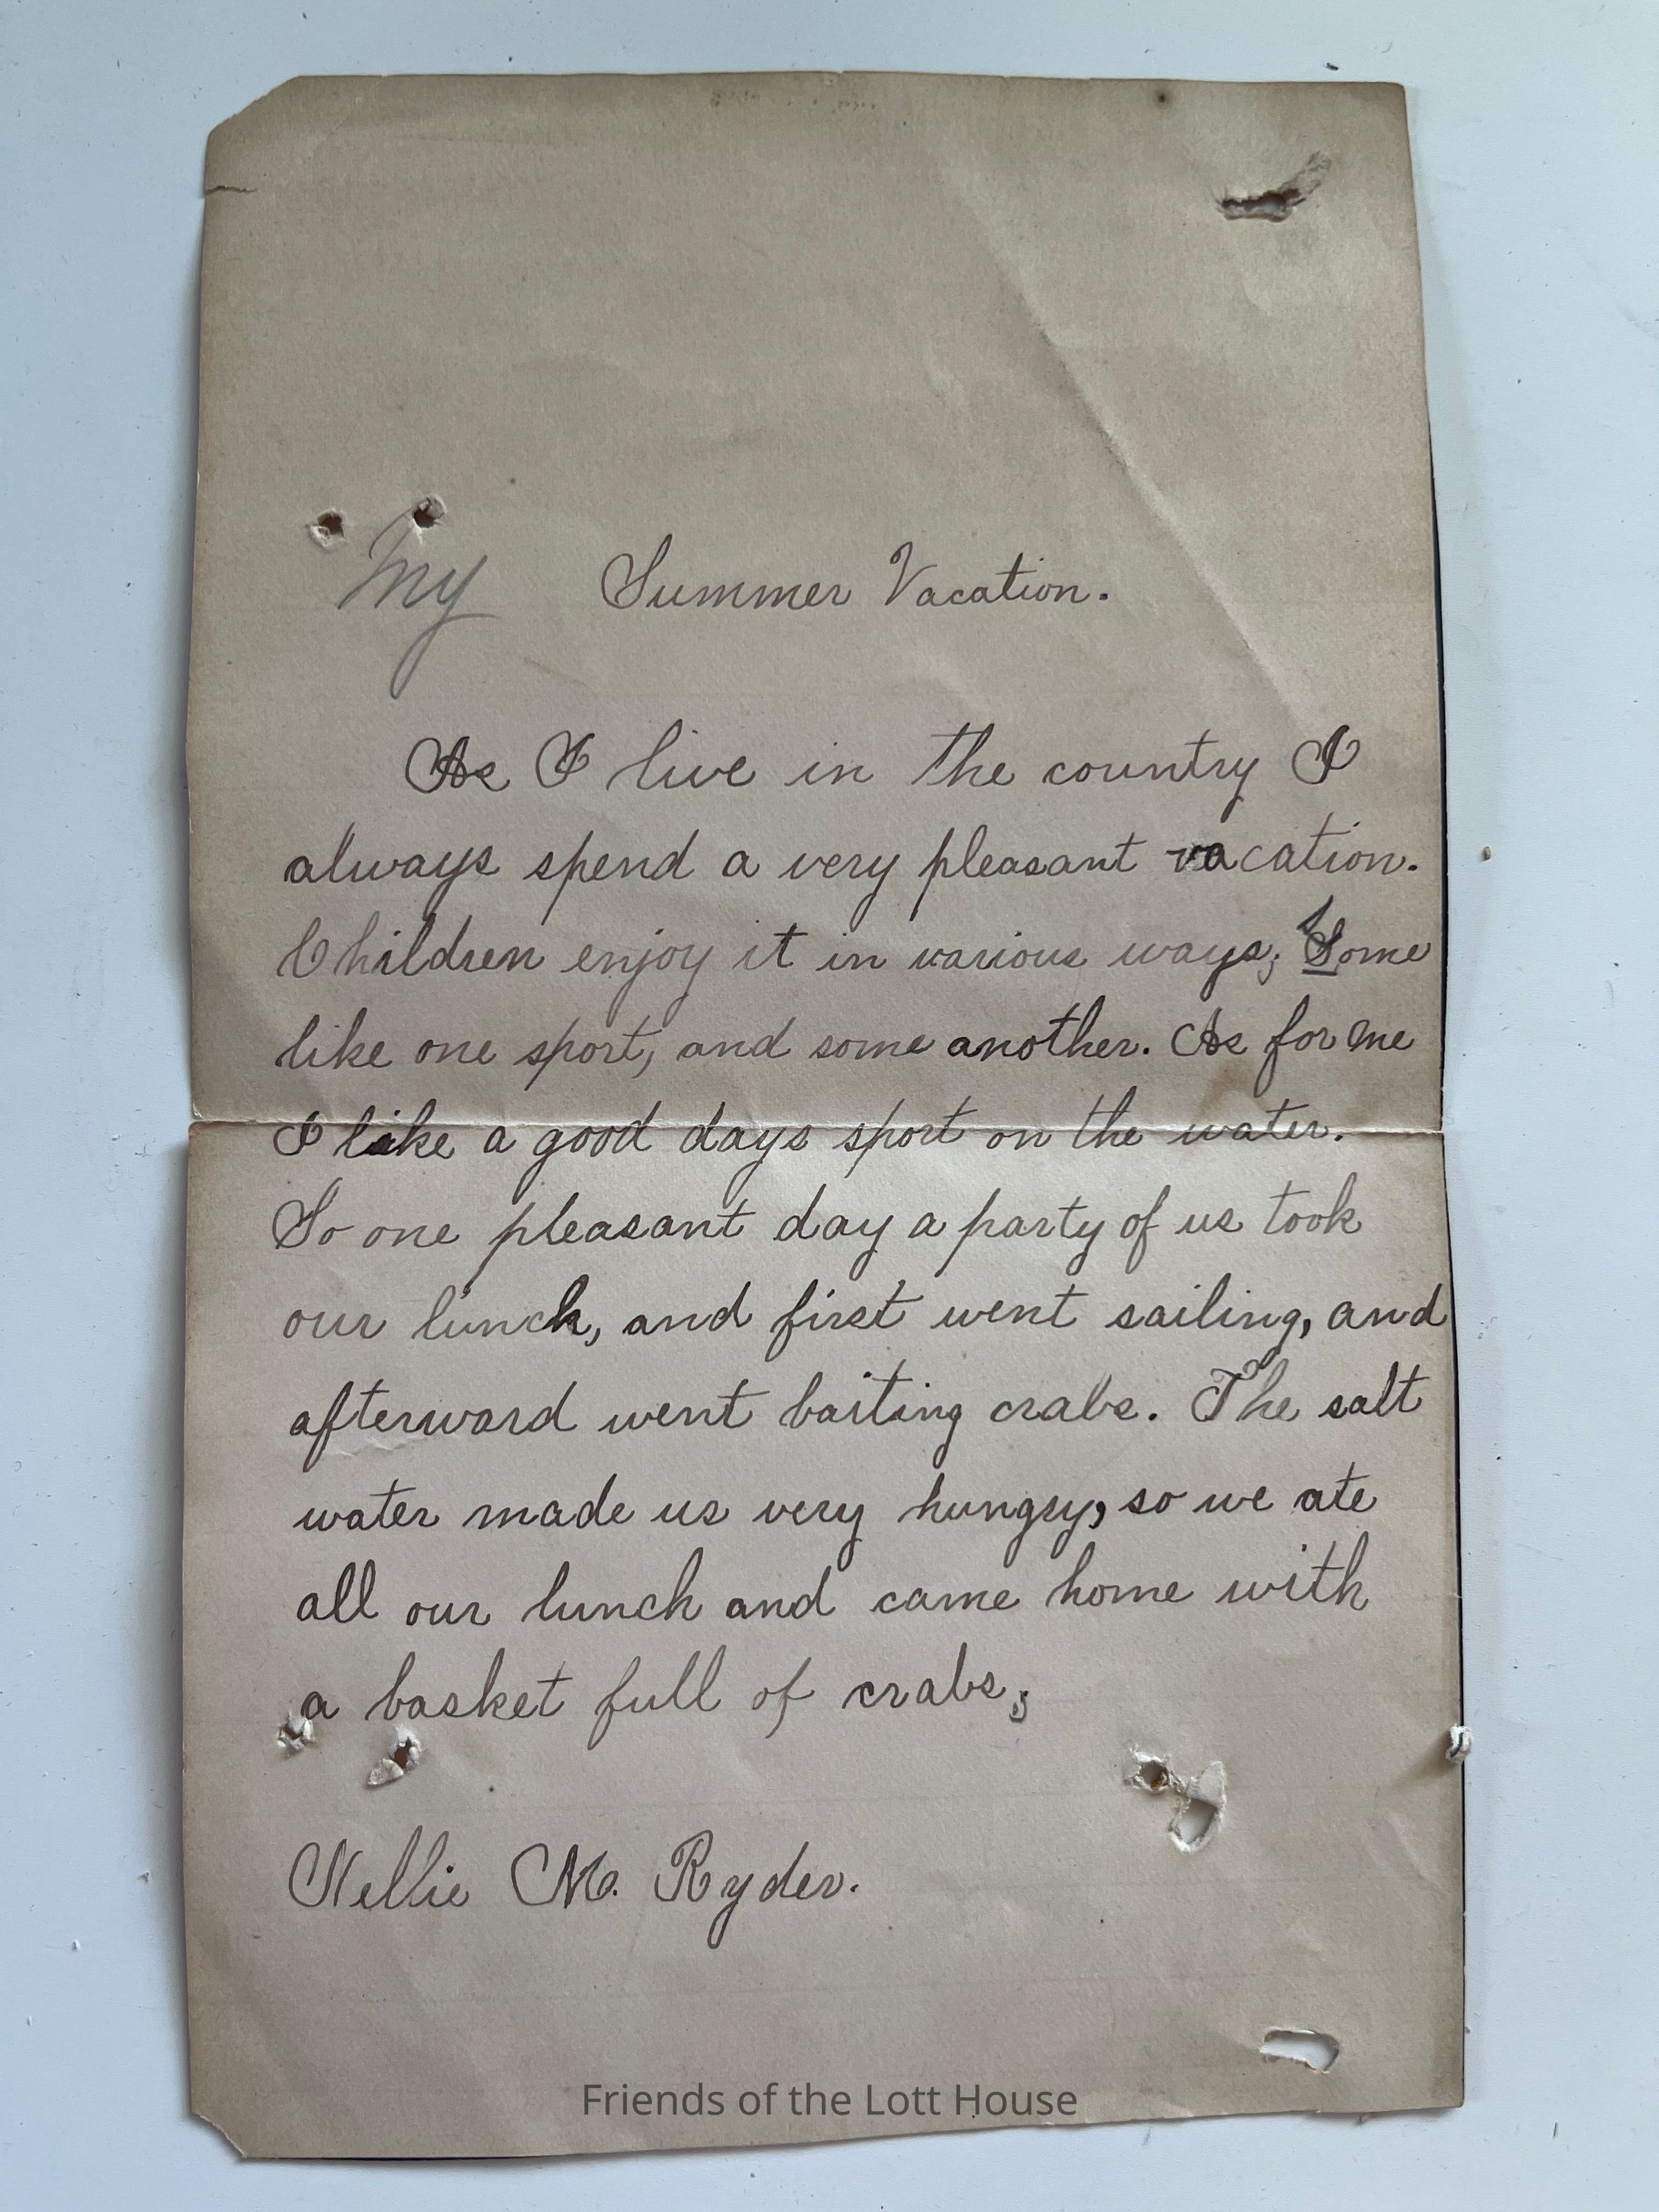 My Summer Vacation.
As I live in the country I
always spend a very pleasant vacation.
Children enjoy it in various ways; Some
like one sport, and some another. As for me
I like a good days sport on the water.
So one pleasant day a party of us took
our lunch, and first went sailing, and
afterward went baiting crabs. The salt
water made us very hungry, so we ate
all our lunch and came home with
a basket full of crabs,
Nellie M. Ryder.
Friends of the Lott House